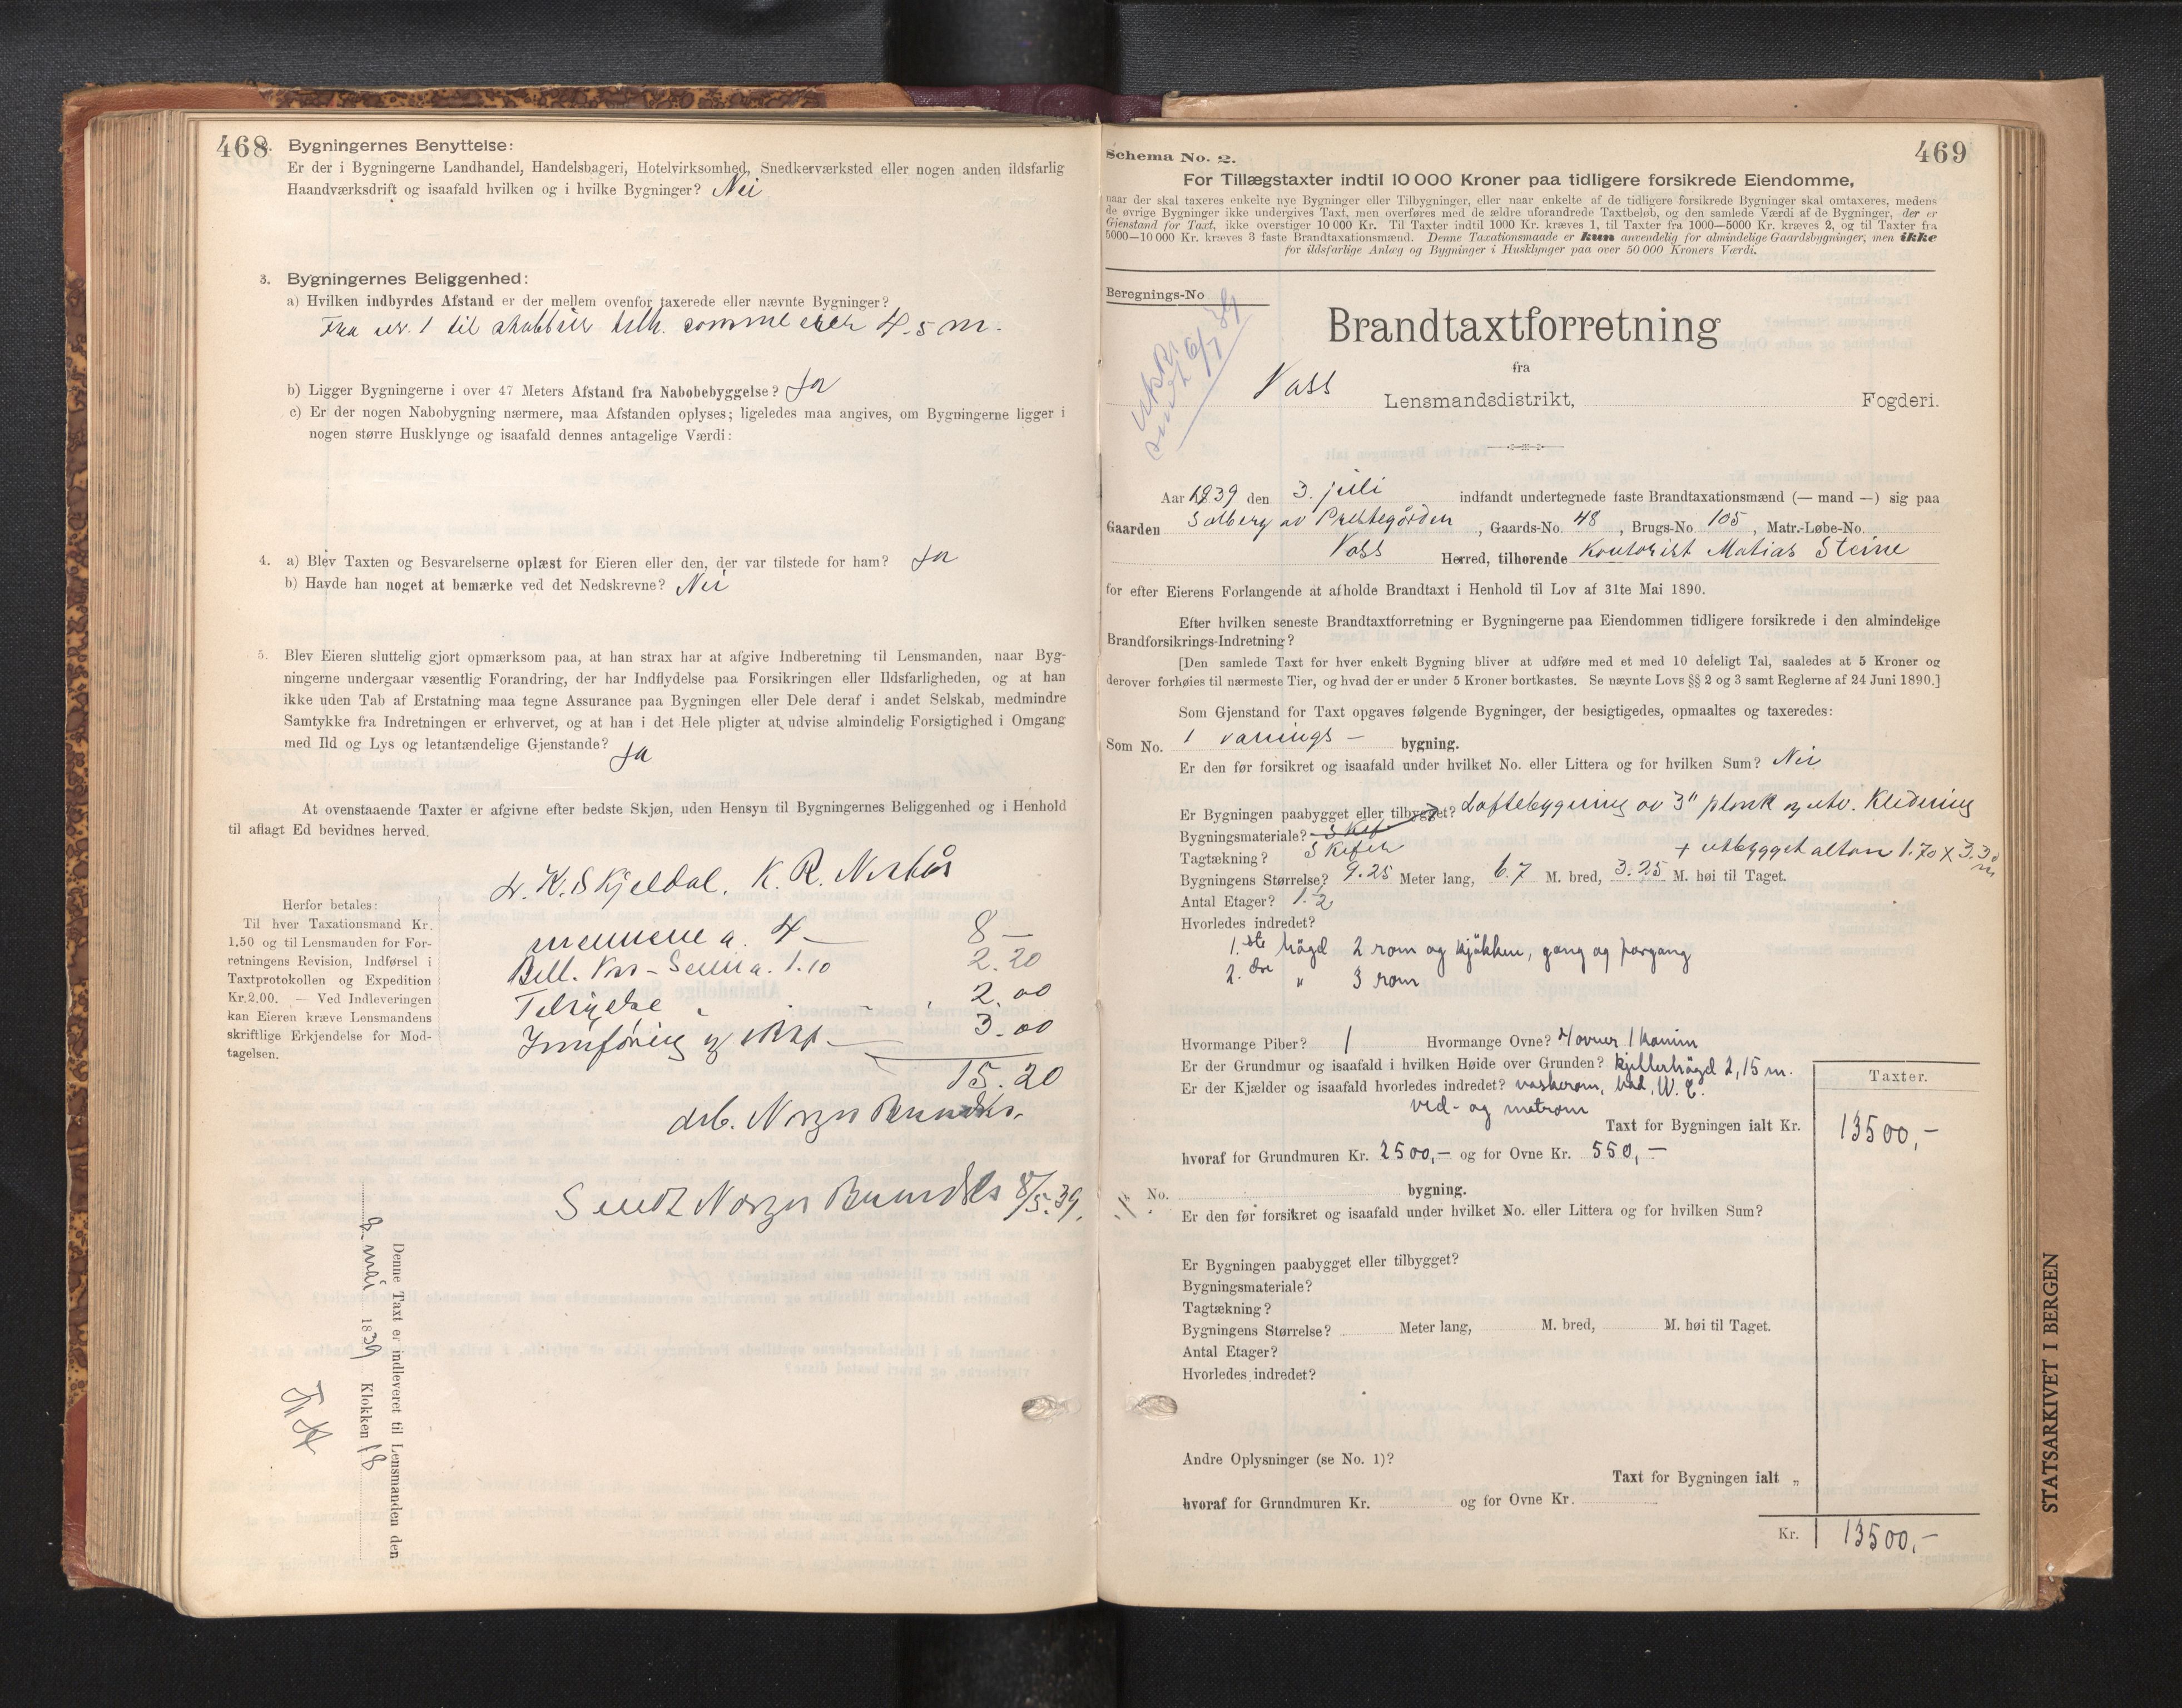 468
2. Bygningernes Benyttelse:
Er der i Bygningerne Landhandel, Handelsbageri, Hotelvirksomhed, Snedkerværksted eller nogen anden ildsfarlig
Haandværksdrift og isaafald hvilken og i hvilke Bygninger? Nei
3. Bygningernes Beliggenhed:
a) Hvilken indbyrdes Afstand er der mellem ovenfor taxerede eller nævnte Bygninger?
Fra nr. 1 til 4.5 m.
b) Ligger Bygningerne i over 47 Meters Afstand fra Nabobebyggelse? Ja
c) Er der nogen Nabobygning nærmere, maa Afstanden oplyses; ligeledes maa angives, om Bygningerne ligger i
nogen større Husklynge og isaafald dennes antagelige Værdi:
4. a) Blev Taxten og Besvarelserne oplæst for Eieren eller den, der var tilstede for ham? Ja
b) Havde han noget at bemærke ved det Nedskrevne? Nei
5. Blev Eieren sluttelig gjort opmærksom paa, at han strax har at afgive Indberetning til Lensmanden, naar Byg-
ningerne undergaar væsentlig Forandring, der har Indflydelse paa Forsikringen eller Ildsfarligheden, og at han
ikke uden Tab af Erstatning maa tegne Assurance paa Bygningen eller Dele deraf i andet Selskab, medmindre
Samtykke fra Indretningen er erhvervet, og at han i det Hele pligter at udvise almindelig Forsigtighed i Omgang
med Ild og Lys og letantændelige Gjenstande? Ja
At ovenstaaende Taxter er afgivne efter bedste Skjøn, uden Hensyn til Bygningernes Beliggenhed og i Henhold
til aflagt Ed bevidnes herved.
K. Skjeldal. K. R.
Herfor betales:
Til hver Taxationsmand Kr.
1.50 og til Lensmanden for For-
retningens Revision, Indførsel i
Taxtprotokollen og Expedition
Kr. 2.00. — Ved Indleveringen
kan Eieren kræve Lensmandens
skriftlige Erkjendelse for Mod-
tagelsen.
mennene a. 4 — 8 —
a. 1.10 2.20
2.00
Innføring og 3.00
15.20
Sendt Norges 8/5.39.
Denne Taxt er indleveret til Lensmanden den
8. mai 1839 Klokken 18
Schema No. 2.
469
For Tillægstaxter indtil 10 000 Kroner paa tidligere forsikrede Eiendomme,
naar der skal taxeres enkelte nye Bygninger eller Tilbygninger, eller naar enkelte af de tidligere forsikrede Bygninger skal omtaxeres, medens
de øvrige Bygninger ikke undergives Taxt, men overføres med de ældre uforandrede Taxtbeløb, og den samlede Værdi af de Bygninger, der er
Gjenstand for Taxt, ikke overstiger 10 000 Kr. Til Taxter indtil 1000 Kr. kræves 1, til Taxter fra 1000—5000 Kr. kræves 2, og til Taxter fra
5000—10 000 Kr. kræves 3 faste Brandtaxationsmænd. Denne Taxationsmaade er kun anvendelig for almindelige Gaardsbygninger, men ikke
for ildsfarlige Anlæg og Bygninger i Husklynger paa over 50 000 Kroners Værdi.
Beregnings-No
Brandtaxtforretning
fra
Voss Lensmandsdistrikt, Fogderi.
Aar 1939 den 3. juli indfandt undertegnede faste Brandtaxationsmænd (— mand —) sig paa
Gaarden Solberg av Prestegården, Gaards-No. 48, Brugs-No. 105, Matr.-Løbe-No.
Voss Herred, tilhørende Kontorist Matias Steine
for efter Eierens Forlangende at afholde Brandtaxt i Henhold til Lov af 31te Mai 1890.
Efter hvilken seneste Brandtaxtforretning er Bygningerne paa Eiendommen tidligere forsikrede i den almindelige
Brandforsikrings-Indretning?
[Den samlede Taxt for hver enkelt Bygning bliver at udføre med et med 10 deleligt Tal, saaledes at 5 Kroner og
derover forhøies til nærmeste Tier, og hvad der er under 5 Kroner bortkastes. Se nævnte Lovs §§ 2 og 3 samt Reglerne af 24 Juni 1890.]
Som Gjenstand for Taxt opgaves følgende Bygninger, der besigtigedes, opmaaltes og taxeredes:
Som No. 1 vånings — bygning.
Er den før forsikret og isaafald under hvilket No. eller Littera og for hvilken Sum? Nei
Er Bygningen paabygget eller tilbygget? Loftebygning av 3" plank og utv. Kledning
Bygningsmateriale?
Tagtækning? Skifer + utbygget altan 1.70 X 3.30 m
Bygningens Størrelse? 9.25 Meter lang, 6.7 M. bred, 3.25 M. høi til Taget.
Antal Etager? 1 1/2
Hvorledes indredet?
1.ste högd 2 rom og kjökken, gang og forgang
2.dre " 3 rom
Hvormange Piber? 1 Hvormange Ovne? 4 ovner 1 kamin
Er der Grundmur og isaafald i hvilken Høide over Grunden? kjellerhögd 2,15 m.
Er der Kjælder og isaafald hvorledes indredet? vaskerom, bad, W.C.
ved- og matrom
Taxter.
Taxt for Bygningen ialt Kr. 13500,-
hvoraf for Grundmuren Kr. 2500,- og for Ovne Kr. 550,-
No. bygning.
Er den før forsikret og isaafald under hvilket No. eller Littera og for hvilken Sum?
Er Bygningen paabygget eller tilbygget?
Bygningsmateriale?
Tagtækning?
Bygningens Størrelse? Meter lang, M. bred, M. høi til Taget.
Antal Etager?
Hvorledes indredet?
Andre Oplysninger (se No. 1)?
Taxt for Bygningen ialt „
hvoraf for Grundmuren Kr. og for Ovne Kr.
Kr. 13500,-
STATSARKIVET I BERGEN